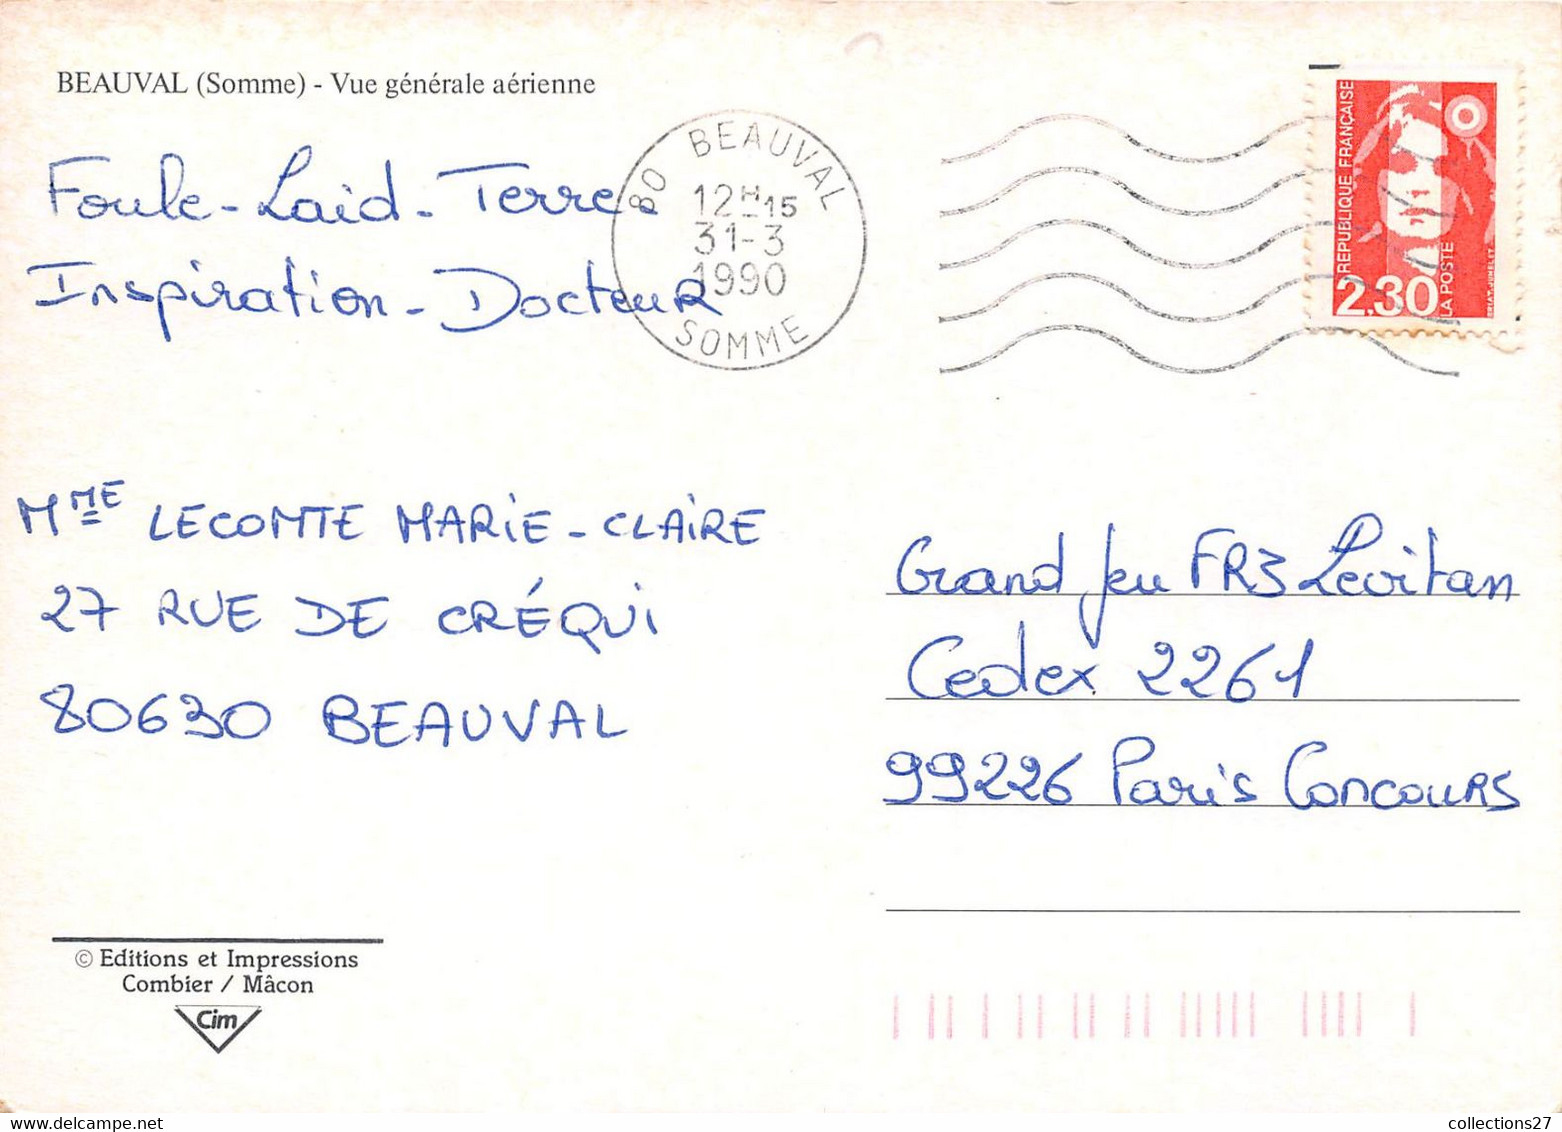 BEAUVAL (Somme) - Vue générale aérienne
Foule - Laid - Terre -
Inspiration - Docteur
80 BEAUVAL
12H15
31-3
1990
SOMME
REPUBLIQUE FRANÇAISE
2,30
LA POSTE
MME LECOMTE MARIE-CLAIRE
27 RUE DE CRÉQUI
80630 BEAUVAL
Grand Jeu FR3 Levitan
Cedex 2261
99226 Paris Concours
© Editions et Impressions
Combier / Mâcon
Cim
collections27